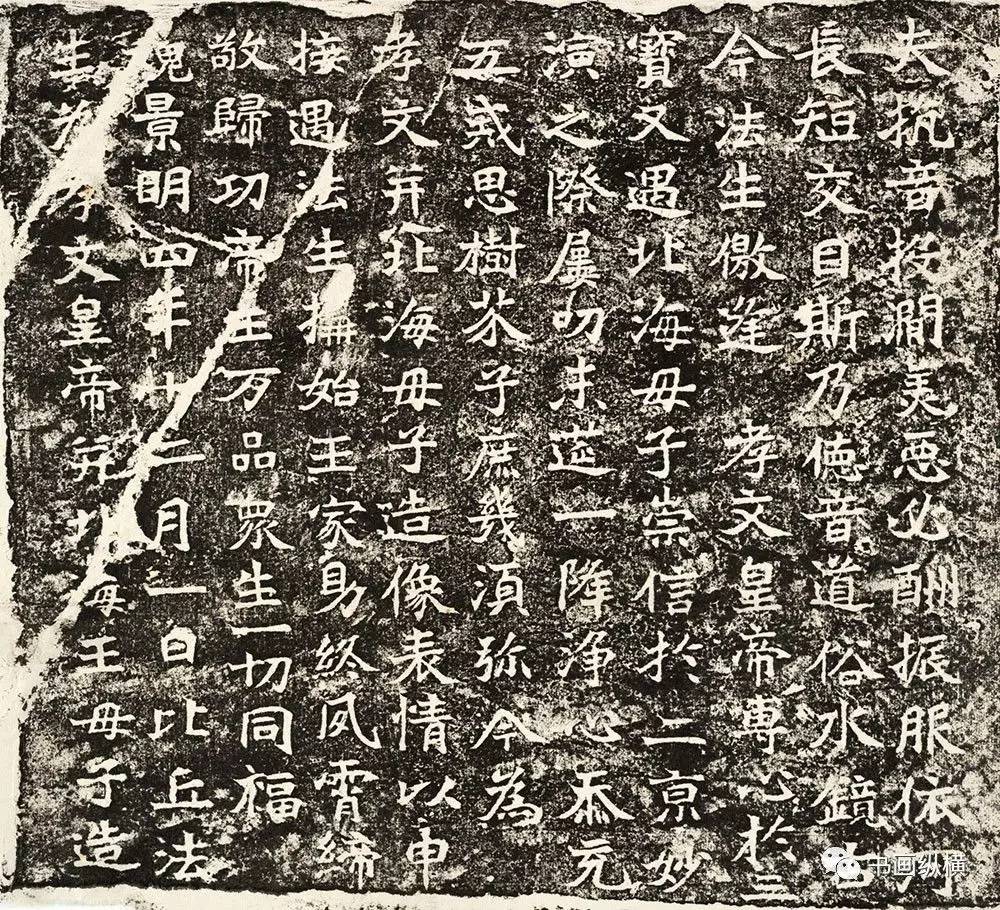 夫抗音投澗美惡必酬振服依河
長短交目斯乃德音道俗水鏡古
今法生儌逢 孝文皇帝專心於三
寶又遇北海母子崇信於二京妙
演之際屢叨末莚一降淨心忝充
五戒思樹芥子庶幾須弥今為
孝文并北海母子造像表情以申
接遇法生構始王家助終夙霄締
敬歸功帝王万品眾生一切同福
魏景明四年十二月一日比丘法
生為孝文皇帝并北海王母子造
书画纵横